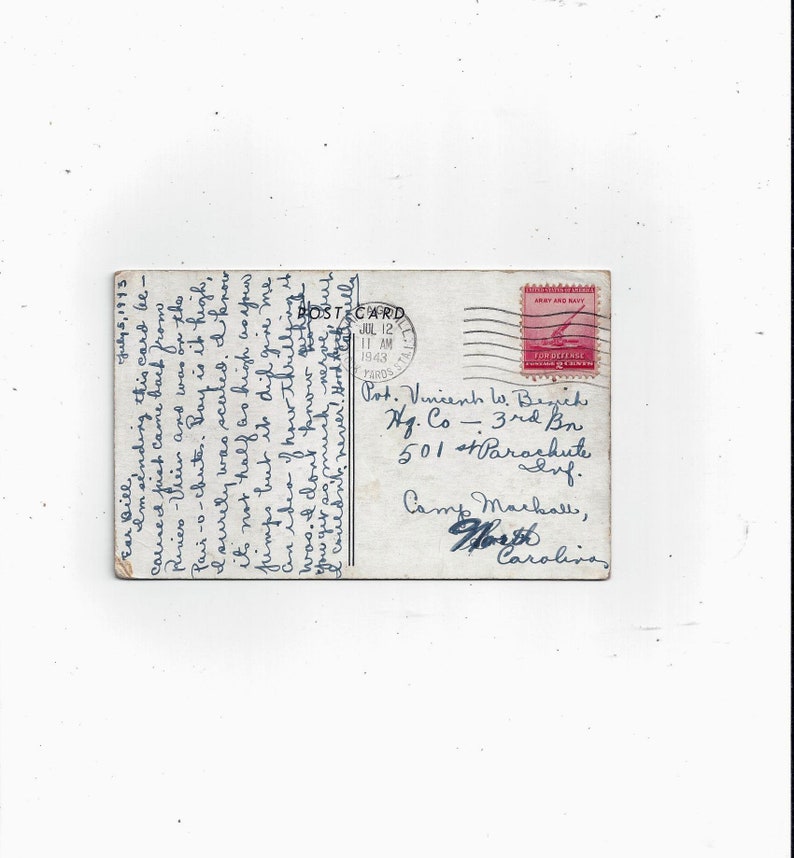 July 5, 1943
Dear Bill
I'm sending this card be-
caused just came back from
River-View and was on the
Pair-o-chutes. Boy is it high,
I surely was scared. I know
it's not half as high as you
jump but it did give me
an idea of how thrilling it
was. I don't know where
you get so much nerve, but
I couldn't never! Good Luck,
POST CARD
CHICAGO, ILL.
JUL 12
11 AM
1943
STK. YARDS STA.
UNITED STATES OF AMERICA
ARMY AND NAVY
FOR DEFENSE
POSTAGE 2 CENTS
Pvt. Vincent W. Bezich
Hq. Co – 3rd Bn
501 st Parachute
Inf.
Camp Mackall,
North
Carolina